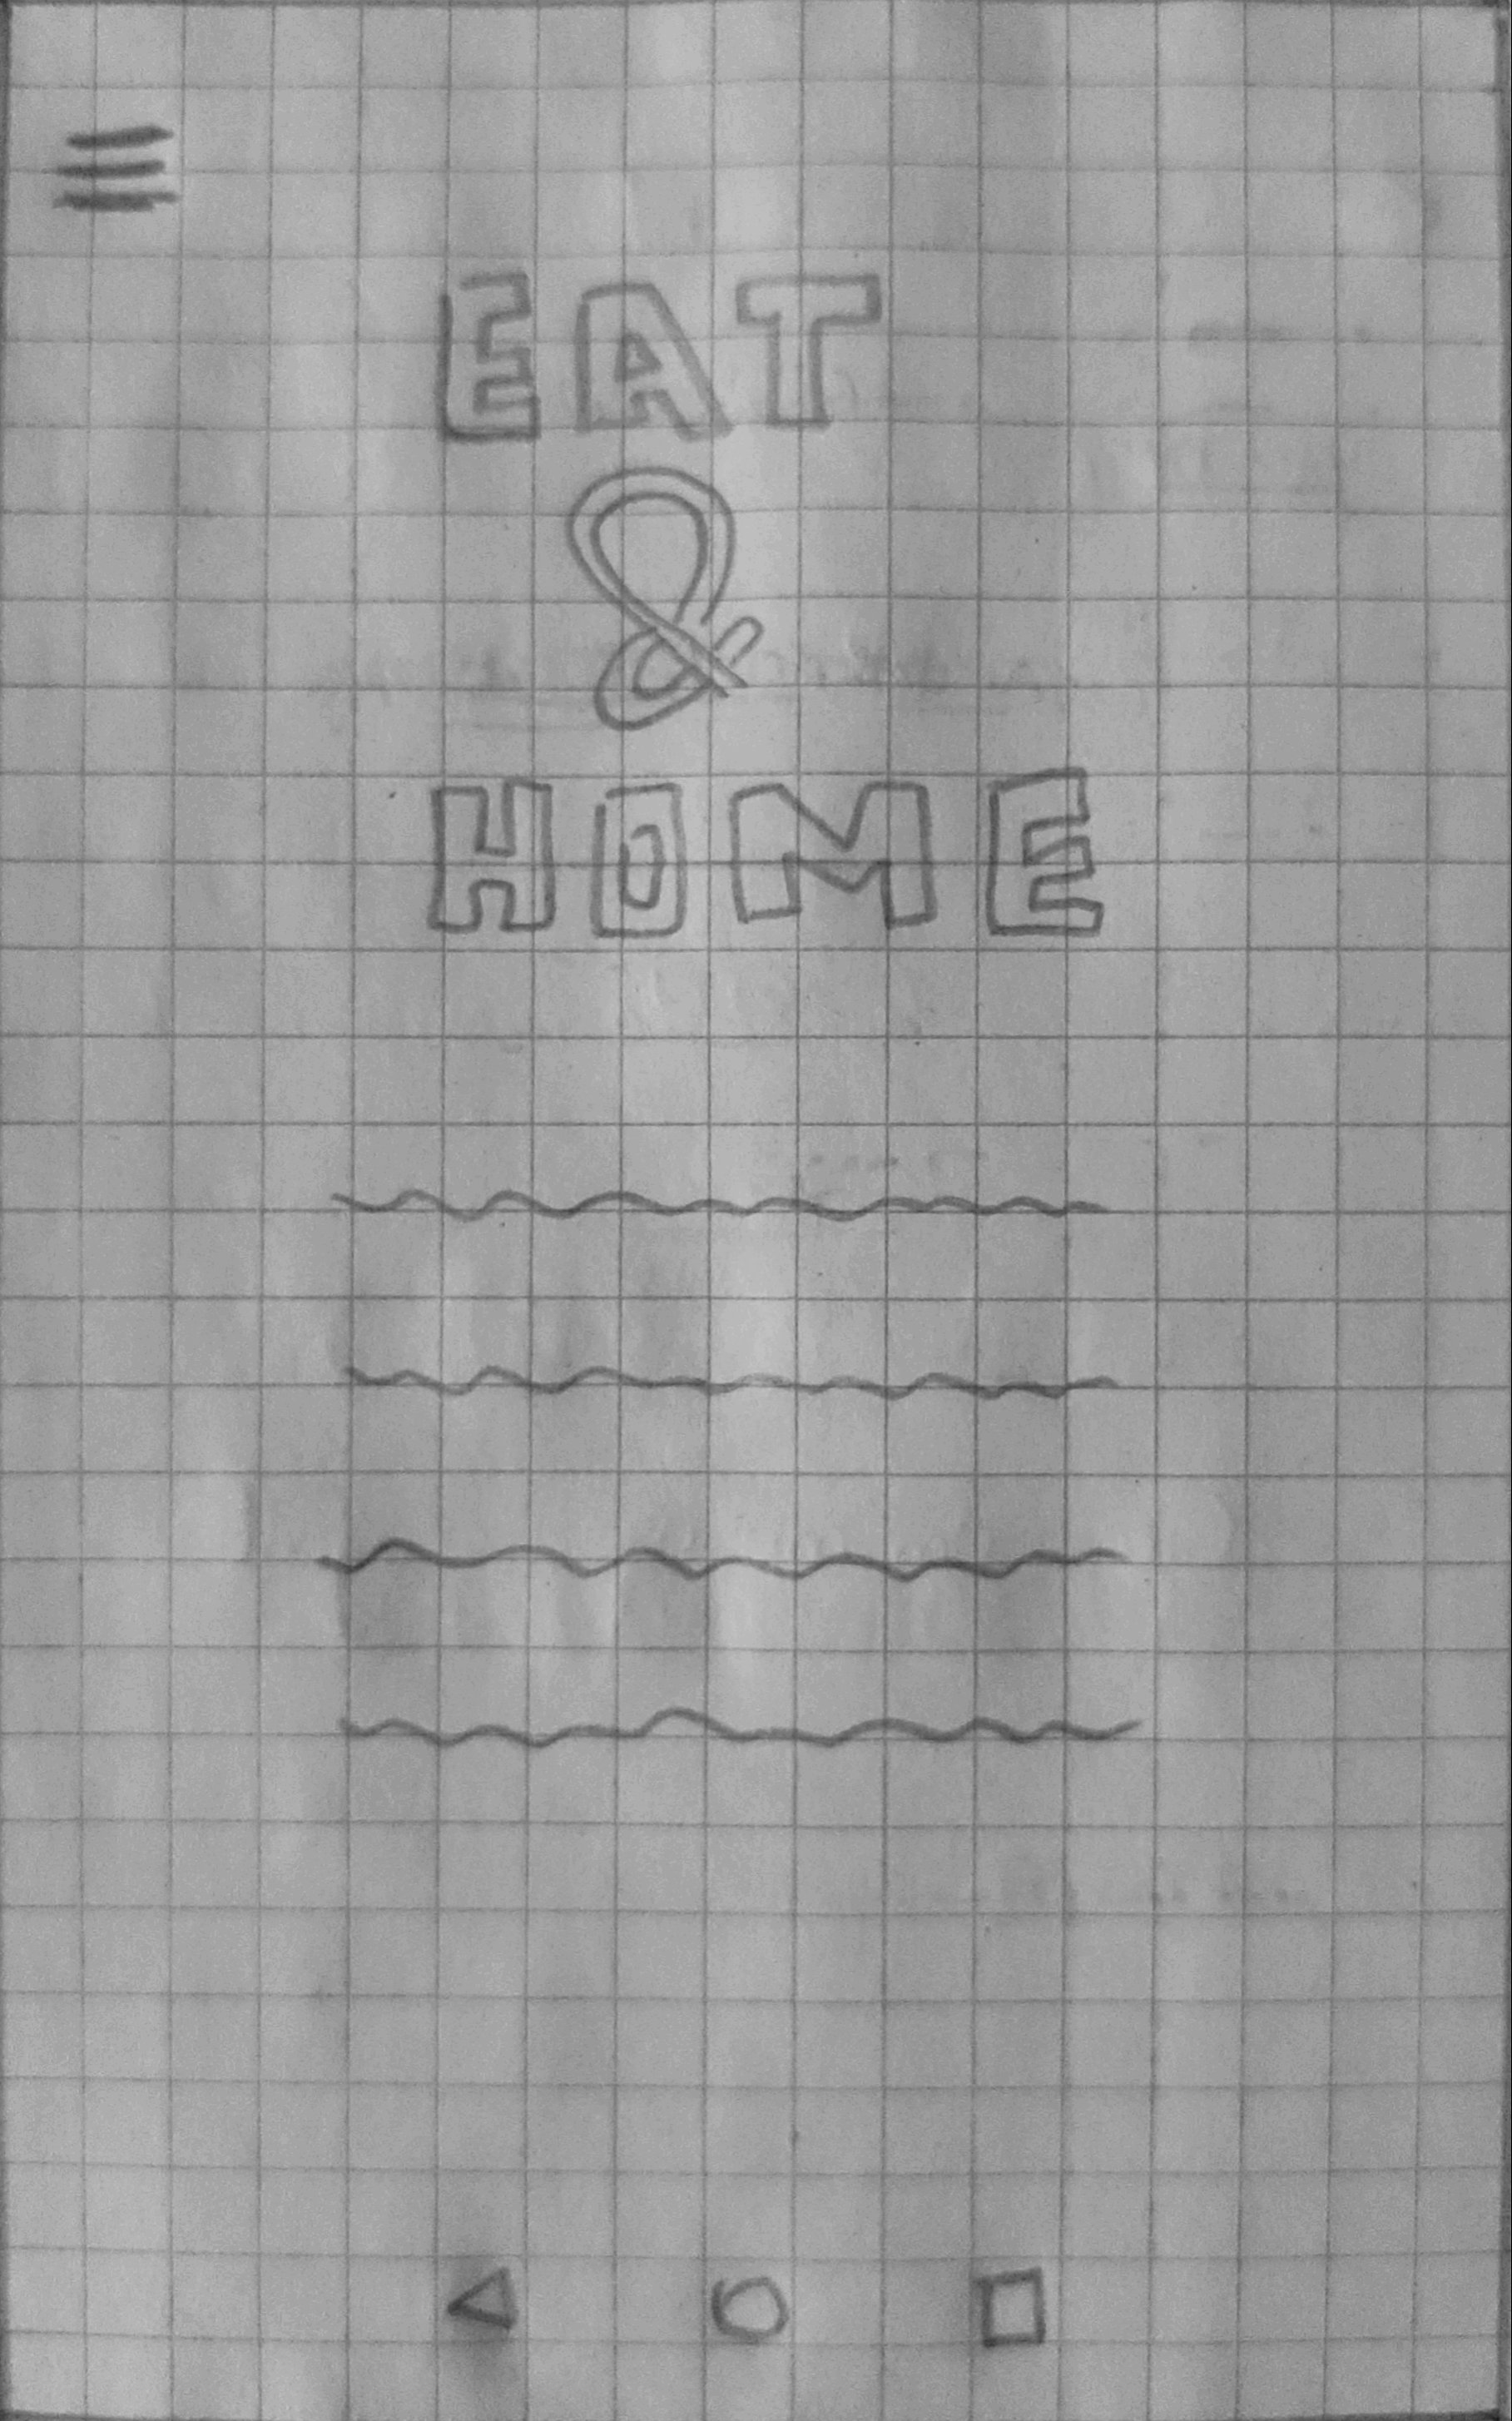 EAT
&
HOME